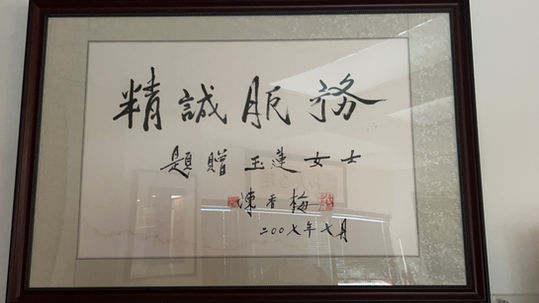 精誠服務
題贈 玉蓮女士
陳香梅
二00七年七月